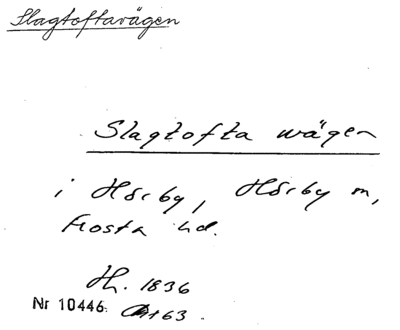 Slagtoftavägen
Slagtofta wägen
i Hörby, Hörby m,
Frosta hd.
Hh. 1836
Nr 10446. 163.